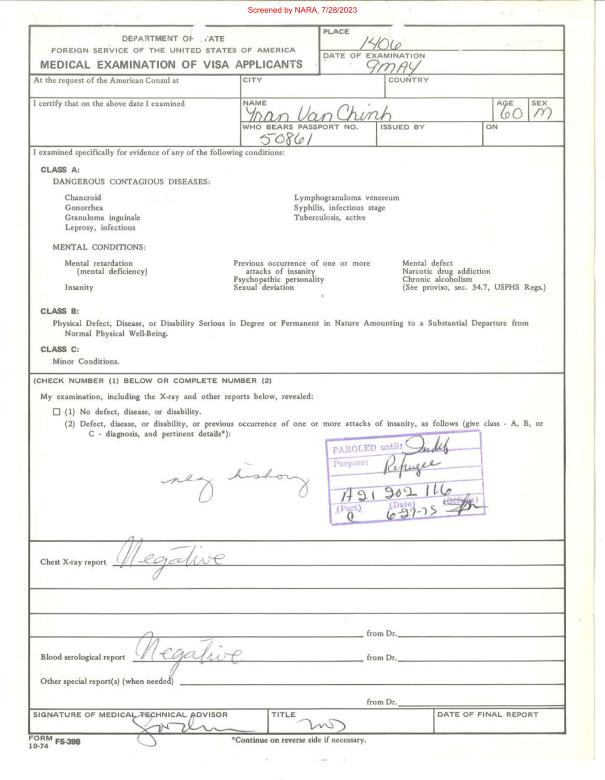 Screened by NARA, 7/28/2023
DEPARTMENT OF STATE
FOREIGN SERVICE OF THE UNITED STATES OF AMERICA
MEDICAL EXAMINATION OF VISA APPLICANTS
PLACE
1406
DATE OF EXAMINATION
9 MAY
At the request of the American Consul at
CITY
COUNTRY
I certify that on the above date I examined
NAME
Tran Van Chinh
AGE
60
SEX
M
WHO BEARS PASSPORT NO.
50861
ISSUED BY
ON
I examined specifically for evidence of any of the following conditions:
CLASS A:
DANGEROUS CONTAGIOUS DISEASES:
Chancroid
Gonorrhea
Granuloma inguinale
Leprosy, infectious
Lymphogranuloma venereum
Syphilis, infectious stage
Tuberculosis, active
MENTAL CONDITIONS:
Mental retardation
(mental deficiency)
Insanity
Previous occurrence of one or more
attacks of insanity
Psychopathic personality
Sexual deviation
Mental defect
Narcotic drug addiction
Chronic alcoholism
(See proviso, sec. 34.7, USPHS Regs.)
CLASS B:
Physical Defect, Disease, or Disability Serious in Degree or Permanent in Nature Amounting to a Substantial Departure from
Normal Physical Well-Being.
CLASS C:
Minor Conditions.
(CHECK NUMBER (1) BELOW OR COMPLETE NUMBER (2)
My examination, including the X-ray and other reports below, revealed:
(1) No defect, disease, or disability.
(2) Defect, disease, or disability, or previous occurrence of one or more attacks of insanity, as follows (give class - A, B, or
C - diagnosis, and pertinent details*):
neg history
PAROLED until: Indef
Purpose: Refugee
A21 202 116
(Port) (Date) (Officer)
6-27-75
Chest X-ray report Negative
from Dr.
Blood serological report Negative from Dr.
Other special report(s) (when needed)
from Dr.
SIGNATURE OF MEDICAL TECHNICAL ADVISOR
TITLE
MD
DATE OF FINAL REPORT
FORM FS-398
10-74
*Continue on reverse side if necessary.